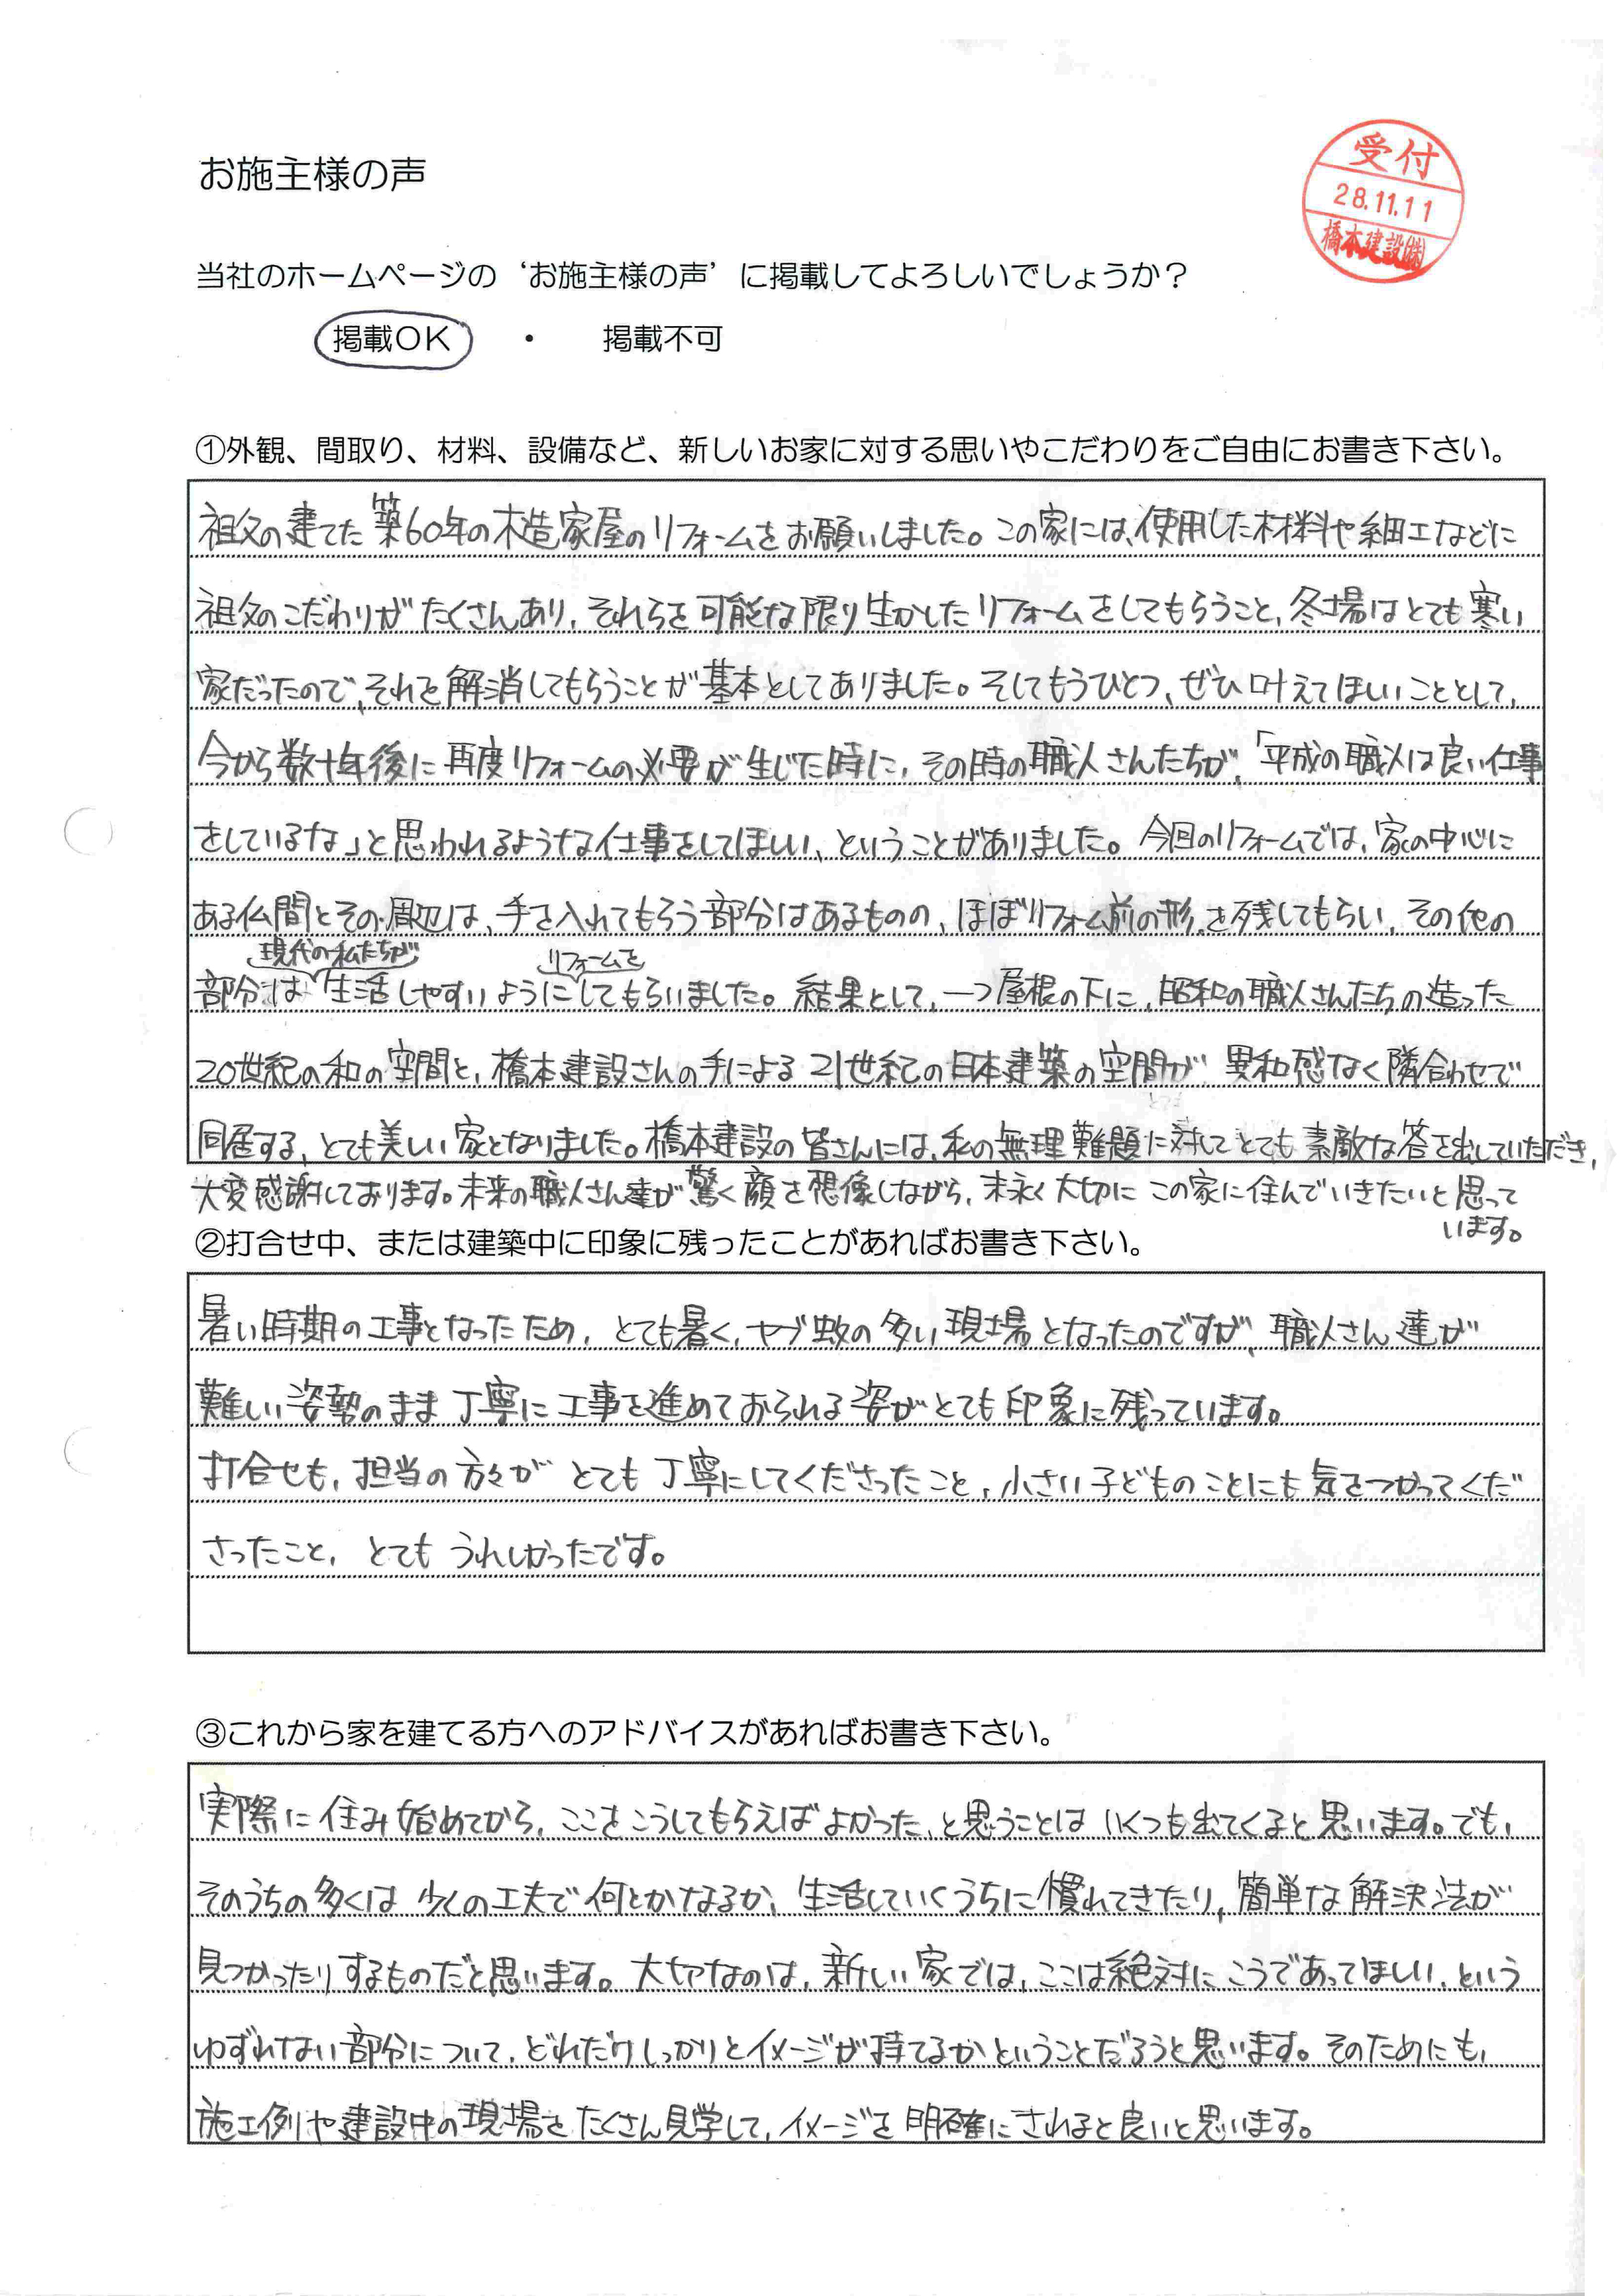 お施主様の声
受付
28.11.11
橋本建設㈱
当社のホームページの‘お施主様の声’に掲載してよろしいでしょうか？
掲載OK ・ 掲載不可
①外観、間取り、材料、設備など、新しいお家に対する思いやこだわりをご自由にお書き下さい。
祖父の建てた築60年の木造家屋のリフォームをお願いしました。この家には、使用した材料や細工などに
祖父のこだわりがたくさんあり、それらを可能な限り生かしたリフォームをしてもらうこと、冬場はとても寒い
家だったので、それを解消してもらうことが基本としてありました。そしてもうひとつ、ぜひ叶えてほしいこととして、
今から数十年後に再度リフォームの必要が生じた時に、その時の職人さんたちが、「平成の職人は良い仕事
をしているな」と思われるような仕事をしてほしい、ということがありました。今回のリフォームでは、家の中心に
ある仏間とその周辺は、手を入れてもらう部分はあるものの、ほぼリフォーム前の形を残してもらい、その他の
部分は現代の私たちが生活しやすいようにリフォームをしてもらいました。結果として、一つ屋根の下に、昭和の職人さんたちの造った
20世紀の和の空間と、橋本建設さんの手による21世紀の日本建築の空間が異和感なく隣合わせで
同居する、とても美しい家となりました。橋本建設の皆さんには、私の無理難題に対してとても素敵な答を出していただき、
大変感謝しております。未来の職人さん達が驚く顔を想像しながら、末永く大切にこの家に住んでいきたいと思って
います。
②打合せ中、または建築中に印象に残ったことがあればお書き下さい。
暑い時期の工事となったため、とても暑く、ヤブ蚊の多い現場となったのですが、職人さん達が
難しい姿勢のまま丁寧に工事を進めておられる姿がとても印象に残っています。
打合せも、担当の方々がとても丁寧にしてくださったこと、小さい子どものことにも気をつかってくだ
さったこと、とてもうれしかったです。
③これから家を建てる方へのアドバイスがあればお書き下さい。
実際に住み始めてから、ここをこうしてもらえばよかった、と思うことはいくつも出てくると思います。でも、
そのうちの多くは少しの工夫で何とかなるか、生活していくうちに慣れてきたり、簡単な解決法が
見つかったりするものだと思います。大切なのは、新しい家では、ここは絶対にこうであってほしい、という
ゆずれない部分について、どれだけしっかりとイメージが持てるかということだろうと思います。そのためにも、
施工例や建設中の現場をたくさん見学して、イメージを明確にされると良いと思います。